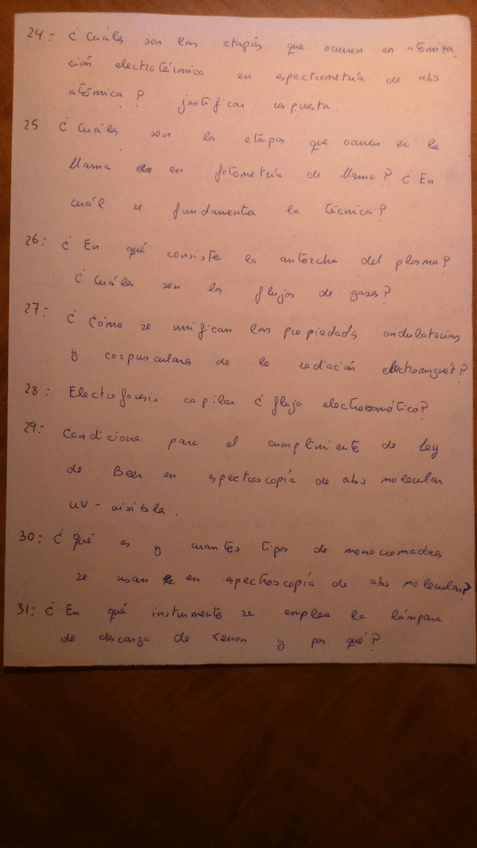 24: ¿Cuáles son las etapas que ocurren en atomiza
ción electrotérmica en espectrometría de abs
atómica? justificar respuesta.
25 ¿Cuáles son las etapas que ocurren en la
llama en fotometría de llama? ¿En
cuál se fundamenta la técnica?
26: ¿En qué consiste la antorcha del plasma?
¿Cuáles son los flujos de gases?
27: ¿Cómo se unifican las propiedades ondulatorias
y corpusculares de la radiación electromagnét?
28: Electroforesis capilar ¿flujo electroosmótico?
29: Condiciones para el cumplimiento de Ley
de Beer en espectroscopía de abs molecular
UV - visible.
30: ¿Qué es y cuantos tipos de monocromadores
se usan en espectroscopía de abs molecular?
31: ¿En qué instrumento se emplea la lámpara
de descarga de xenon y por qué?